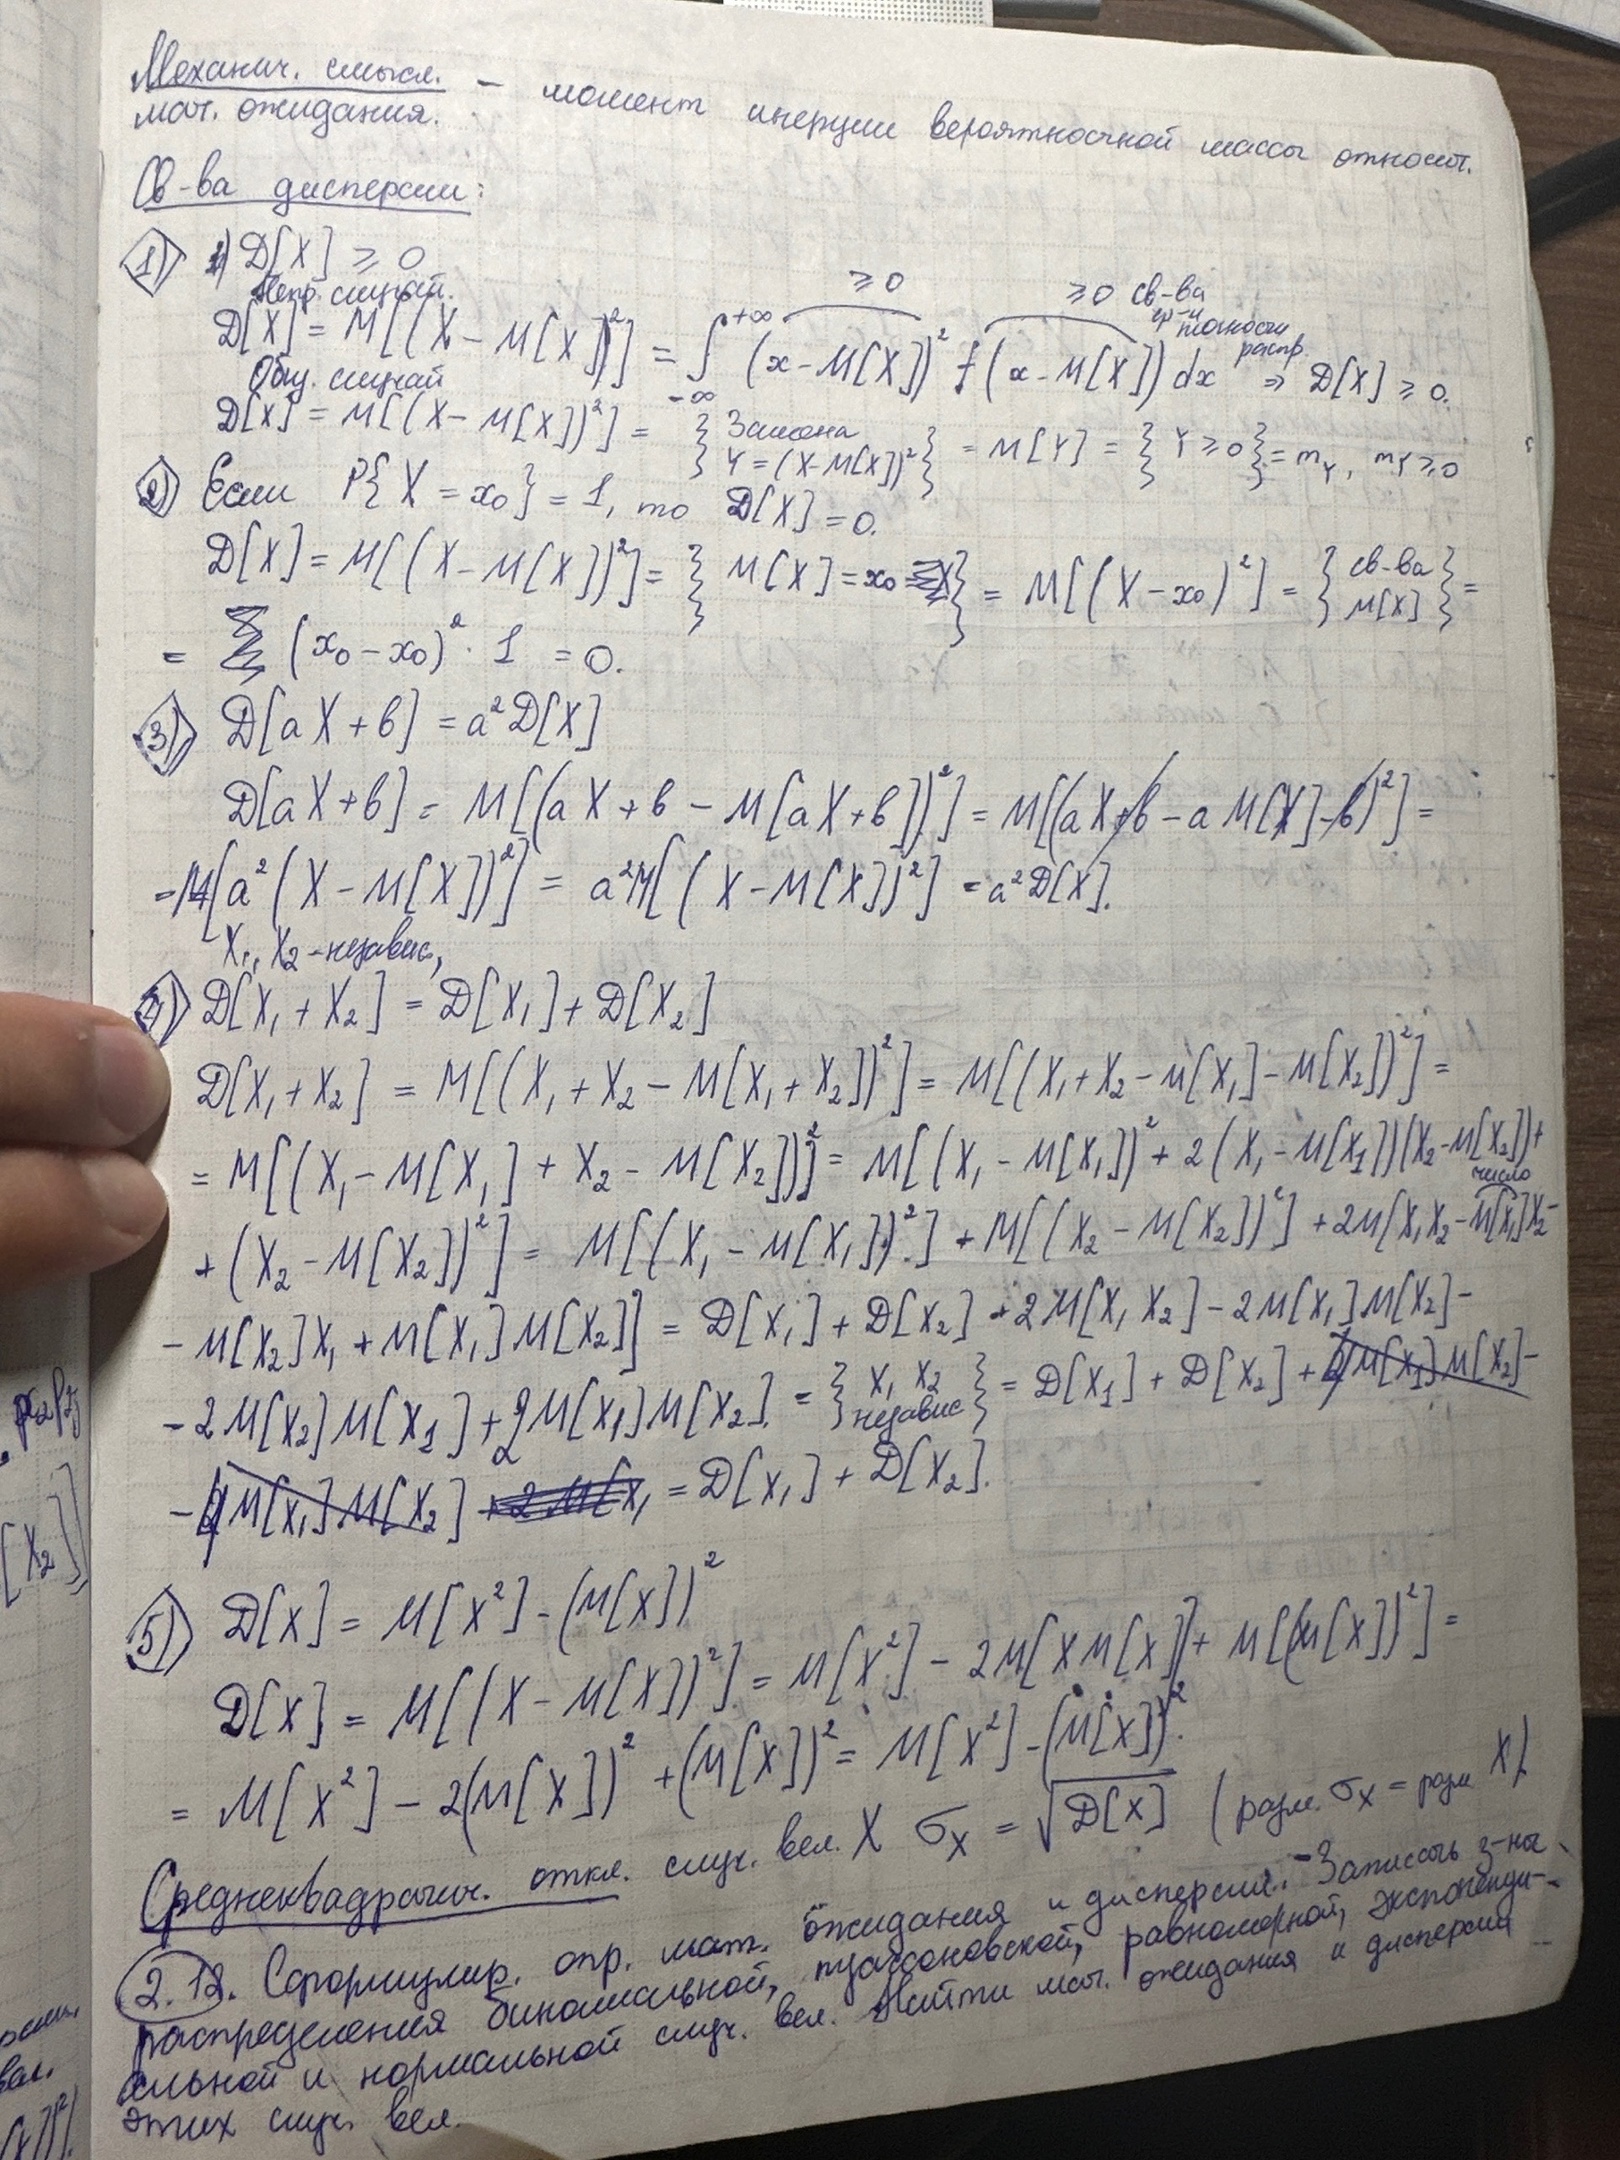 Механич. смысл. — момент инерции вероятностной массы относит.
мат. ожидания.
Св-ва дисперсии:
1) D[X] ⩾ 0
Непр. случай.
D[X] = M[(X − M[X])²] = ∫_{−∞}^{+∞} (x − M[X])² f(x − M[X]) dx ⇒ D[X] ⩾ 0.
⩾ 0
⩾ 0 св-ва
ф-и плотности
распр.
Общ. случай
D[X] = M[(X − M[X])²] = { Замена Y = (X − M[X])² } = M[Y] = { Y ⩾ 0 } = m_Y, m_Y ⩾ 0
2) Если P{X = x₀} = 1, то D[X] = 0.
D[X] = M[(X − M[X])²] = { M[X] = x₀ } = M[(X − x₀)²] = { св-ва M[X] } =
= (x₀ − x₀)² · 1 = 0.
3) D[aX + b] = a² D[X]
D[aX + b] = M[(aX + b − M[aX + b])²] = M[(aX + b − a M[X] − b)²] =
= M[a² (X − M[X])²] = a² M[(X − M[X])²] = a² D[X].
X₁, X₂ - независ,
4) D[X₁ + X₂] = D[X₁] + D[X₂]
D[X₁ + X₂] = M[(X₁ + X₂ − M[X₁ + X₂])²] = M[(X₁ + X₂ − M[X₁] − M[X₂])²] =
= M[(X₁ − M[X₁] + X₂ − M[X₂])²] = M[(X₁ − M[X₁])² + 2(X₁ − M[X₁])(X₂ − M[X₂]) +
число
+ (X₂ − M[X₂])²] = M[(X₁ − M[X₁])²] + M[(X₂ − M[X₂])²] + 2M[X₁X₂ − M[X₁]X₂ −
− M[X₂]X₁ + M[X₁]M[X₂]] = D[X₁] + D[X₂] + 2M[X₁X₂] − 2M[X₁]M[X₂] −
− 2M[X₂]M[X₁] + 2M[X₁]M[X₂] = { X₁ X₂ независ } = D[X₁] + D[X₂] + 2M[X₁]M[X₂] −
− 2M[X₁]M[X₂] + 2M[X₁ = D[X₁] + D[X₂].
5) D[X] = M[X²] − (M[X])²
D[X] = M[(X − M[X])²] = M[X²] − 2M[X M[X]] + M[(M[X])²] =
= M[X²] − 2(M[X])² + (M[X])² = M[X²] − (M[X])².
Среднеквадратич. откл. случ. вел. X σ_X = √D[X] (разм. σ_X = разм X).
2.12. Сформулир. опр. мат. ожидания и дисперсии. Записать з-ны
распределения биномиальной, пуассоновской, равномерной, экспоненци-
альной и нормальной случ. вел. Найти мат. ожидания и дисперсии
этих случ. вел.